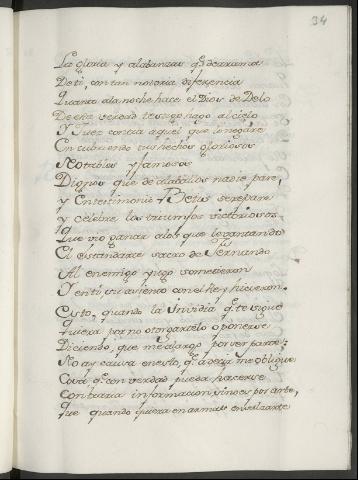 34
La gloria y alabanzas q.e derrama
De ti, con tan notoria diferencia
Quanta a la noche hace el Dios de Delo
De esta verdad testigo hago al cielo
Y Juez contra aquel que lo negare
Encubriendo tus hechos gloriosos
Notables y famosos
Dignos que de alaballos nadie pare,
y En testimonio Betis se repare
y celebre los triumfos victoriosos
Que vio ganar a los que levantando
El estandarte sacro de Fernando
Al enemigo yugo sometieron
Y en ti, su asiento con el Rey hicieron.
Esto, quando la Invidia q.e te sigue
Quiera por no otorgartelo oponerse
Diciendo, que me alargo por ser parte:
No ay causa en esto, q.e a decir me obligue
Cosa q.e con verdad pueda hacerse
Contraria informacion sino es por arte,
que quando quiera en armas